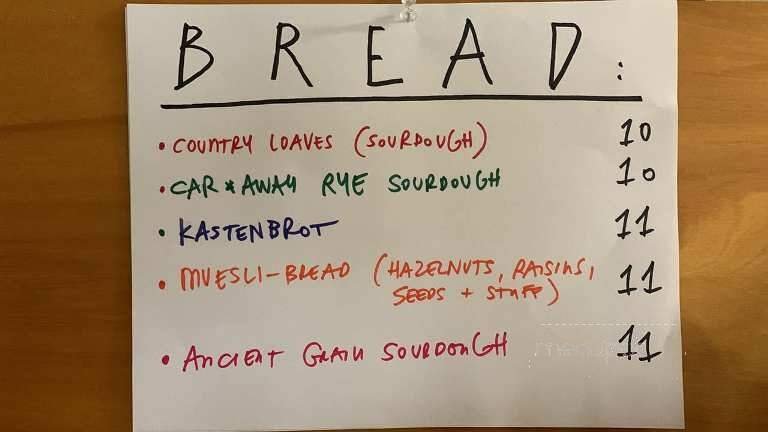 BREAD:
• COUNTRY LOAVES (SOURDOUGH) 10
• CAR*AWAY RYE SOURDOUGH 10
• KASTENBROT 11
• MUESLI-BREAD (HAZELNUTS, RAISINS, 11
SEEDS + STUFF)
• ANCIENT GRAIN SOURDOUGH 11